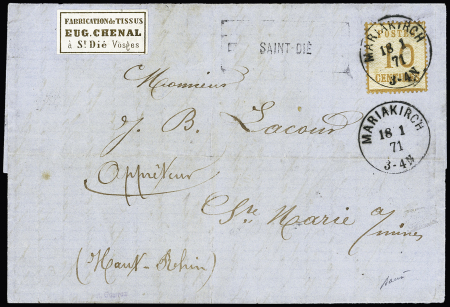 FABRICATION de TISSUS
EUG. CHENAL
à St Dié Vosges
SAINT-DIÉ
POSTES
10
CENTIMES
MARIAKIRCH
18 1
71
3-4N
Monsieur
J. B. Lacour
MARIAKIRCH
18 1
71
3-4N
Apprêteur
Ste Marie a/mines
(Haut-Rhin)